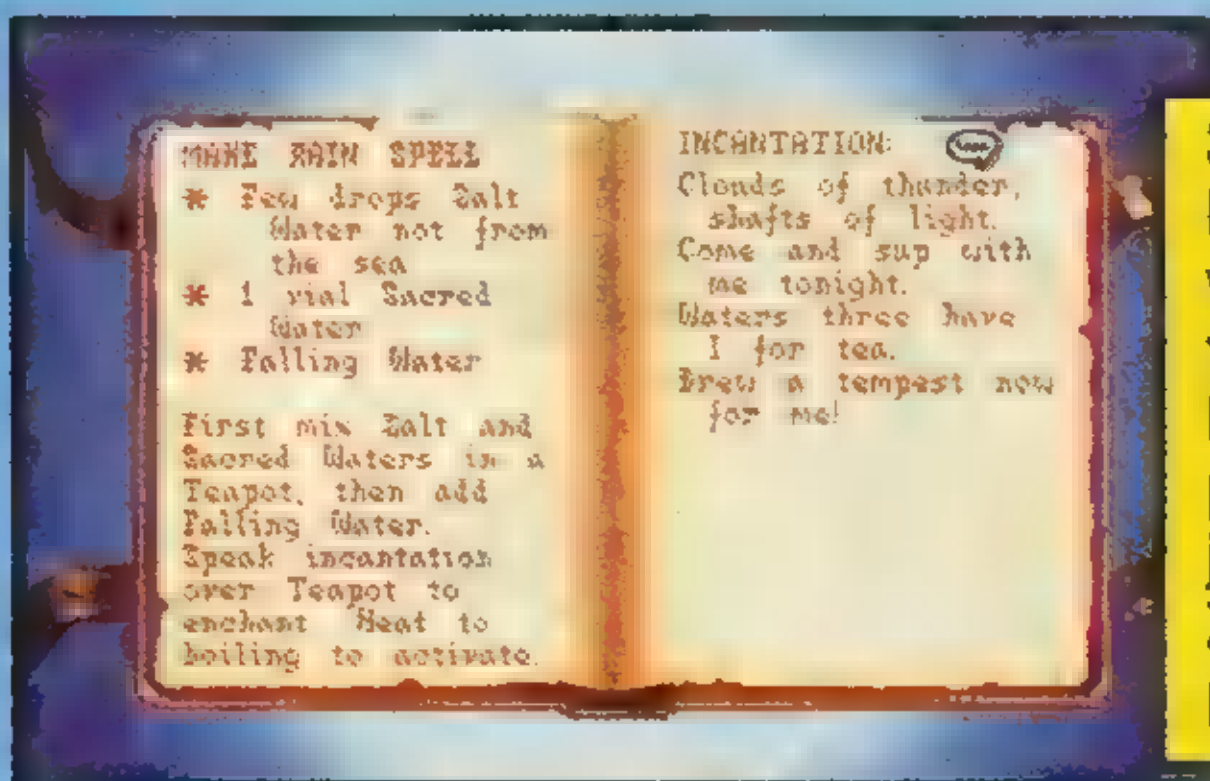 MAKE RAIN SPELL
* Few drops Salt
Water not from
the sea
* 1 vial Sacred
Water
* Falling Water
First mix Salt and
Sacred Waters in a
Teapot, then add
Falling Water.
Speak incantation
over Teapot to
enchant Heat to
boiling to activate.
INCANTATION:
Clouds of thunder,
shafts of light.
Come and sup with
me tonight.
Waters three have
I for tea.
Brew a tempest now
for me!